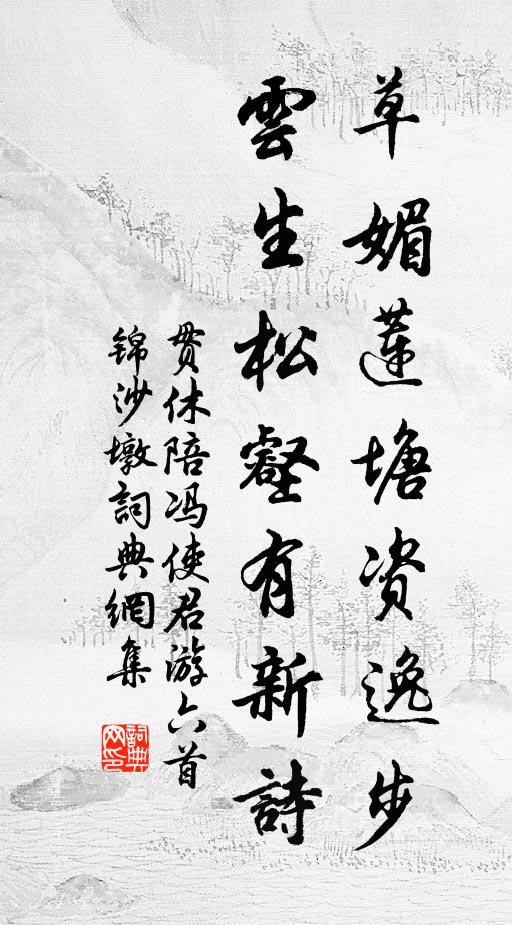 草媚蓮塘资逸步
雲生松壑有新詩
贯休陪冯使君游六首
锦沙墩
詞典網集
詞典
网印